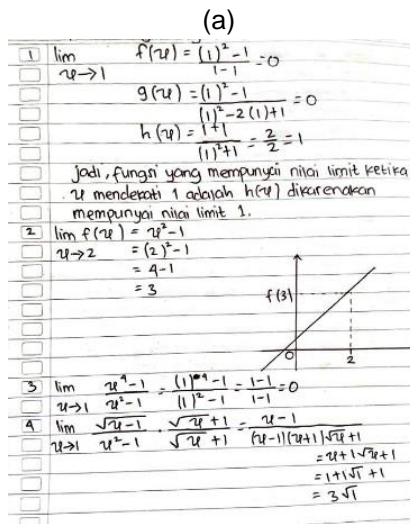 (a)
1 lim x→1 f(x) = (1)²-1 / 1-1 = 0
g(x) = (1)²-1 / (1)²-2(1)+1 = 0
h(x) = 1+1 / (1)²+1 = 2/2 = 1
jadi, fungsi yang mempunyai nilai limit ketika
x mendekati 1 adalah h(x) dikarenakan
mempunyai nilai limit 1.
2 lim f(x) = x²-1
x→2 = (2)²-1
= 4-1
= 3
f(3)
0 2
3 lim x→1 x⁴-1 / x²-1 = (1)⁴-1 / (1)²-1 = 1-1 / 1-1 = 0
4 lim x→1 √x-1 / x²-1 · √x+1 / √x+1 = x-1 / (x-1)(x+1)√x+1
= x+1√x+1
= 1+1√1+1
= 3√1